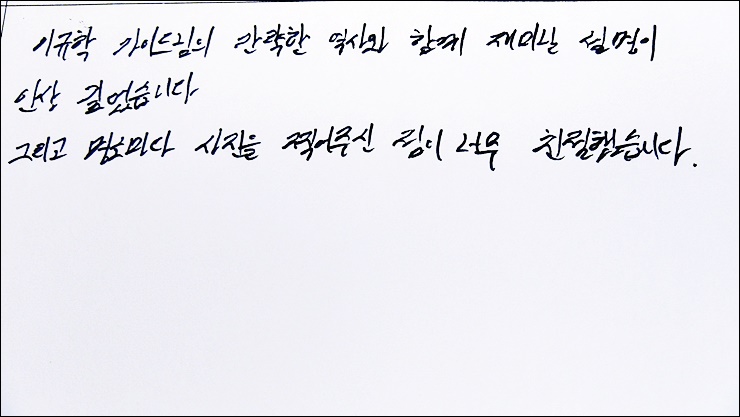 이규학 가이드님의 간략한 역사와 함께 재미난 설명이
인상 깊었습니다
그리고 명소마다 사진을 찍어주신 점이 너무 친절했습니다.